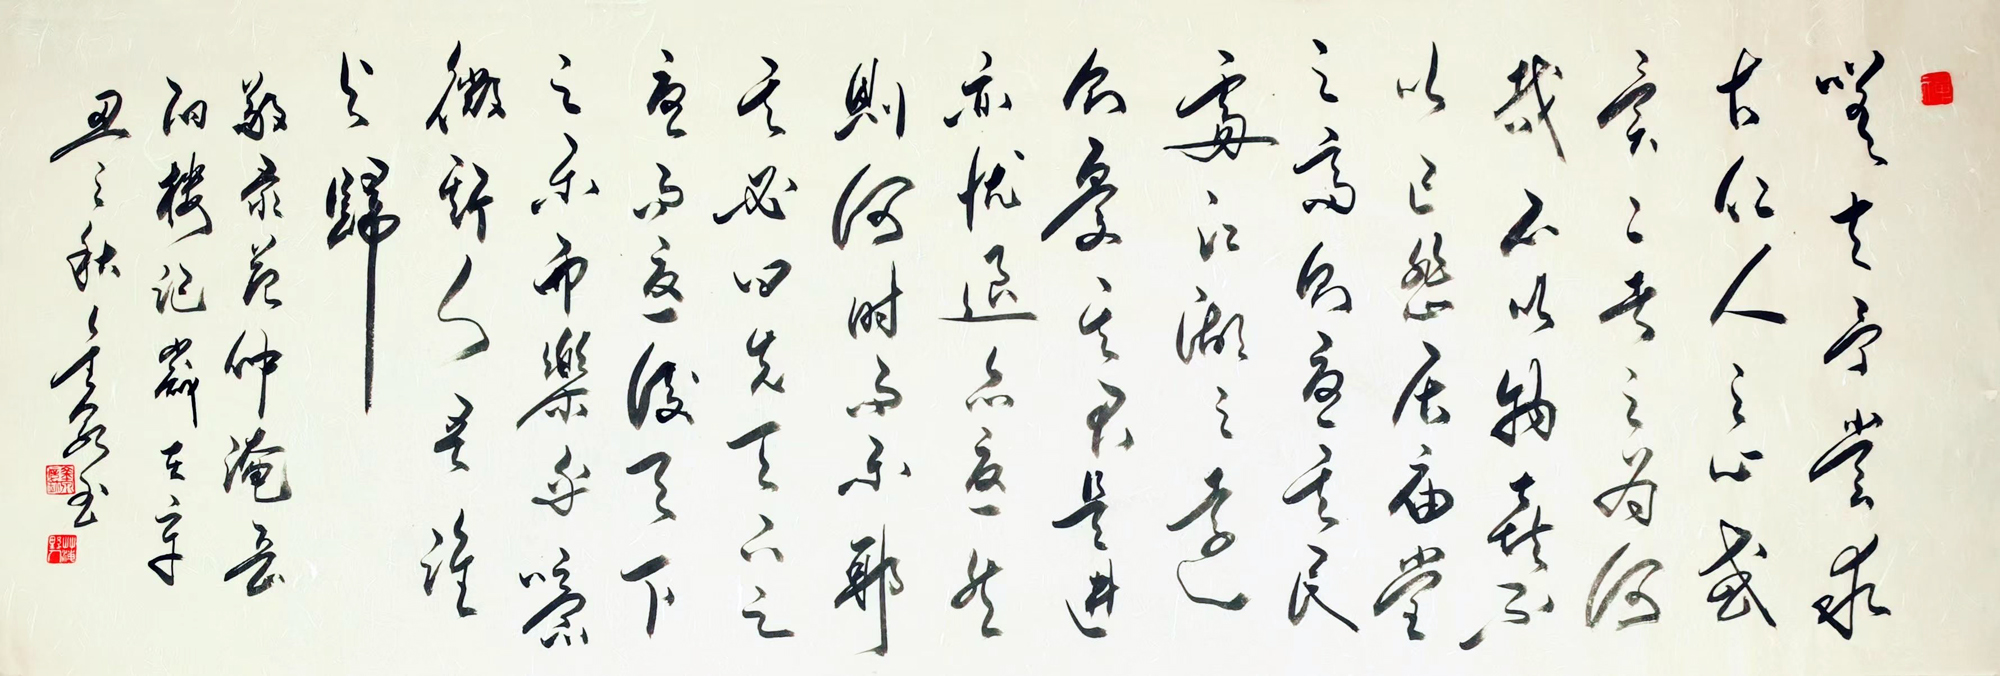 嗟夫予嘗求
古仁人之心或
異二者之为何
哉不以物喜不
以己悲居庙堂
之高则憂其民
處江湖之遠
则憂其君是進
亦忧退亦憂然
則何時而乐耶
其必曰先天下之
憂而憂後天下
之乐而樂乎噫
微斯人吾誰
与歸
敬录范仲淹岳
阳楼记歲在辛
丑之秋书